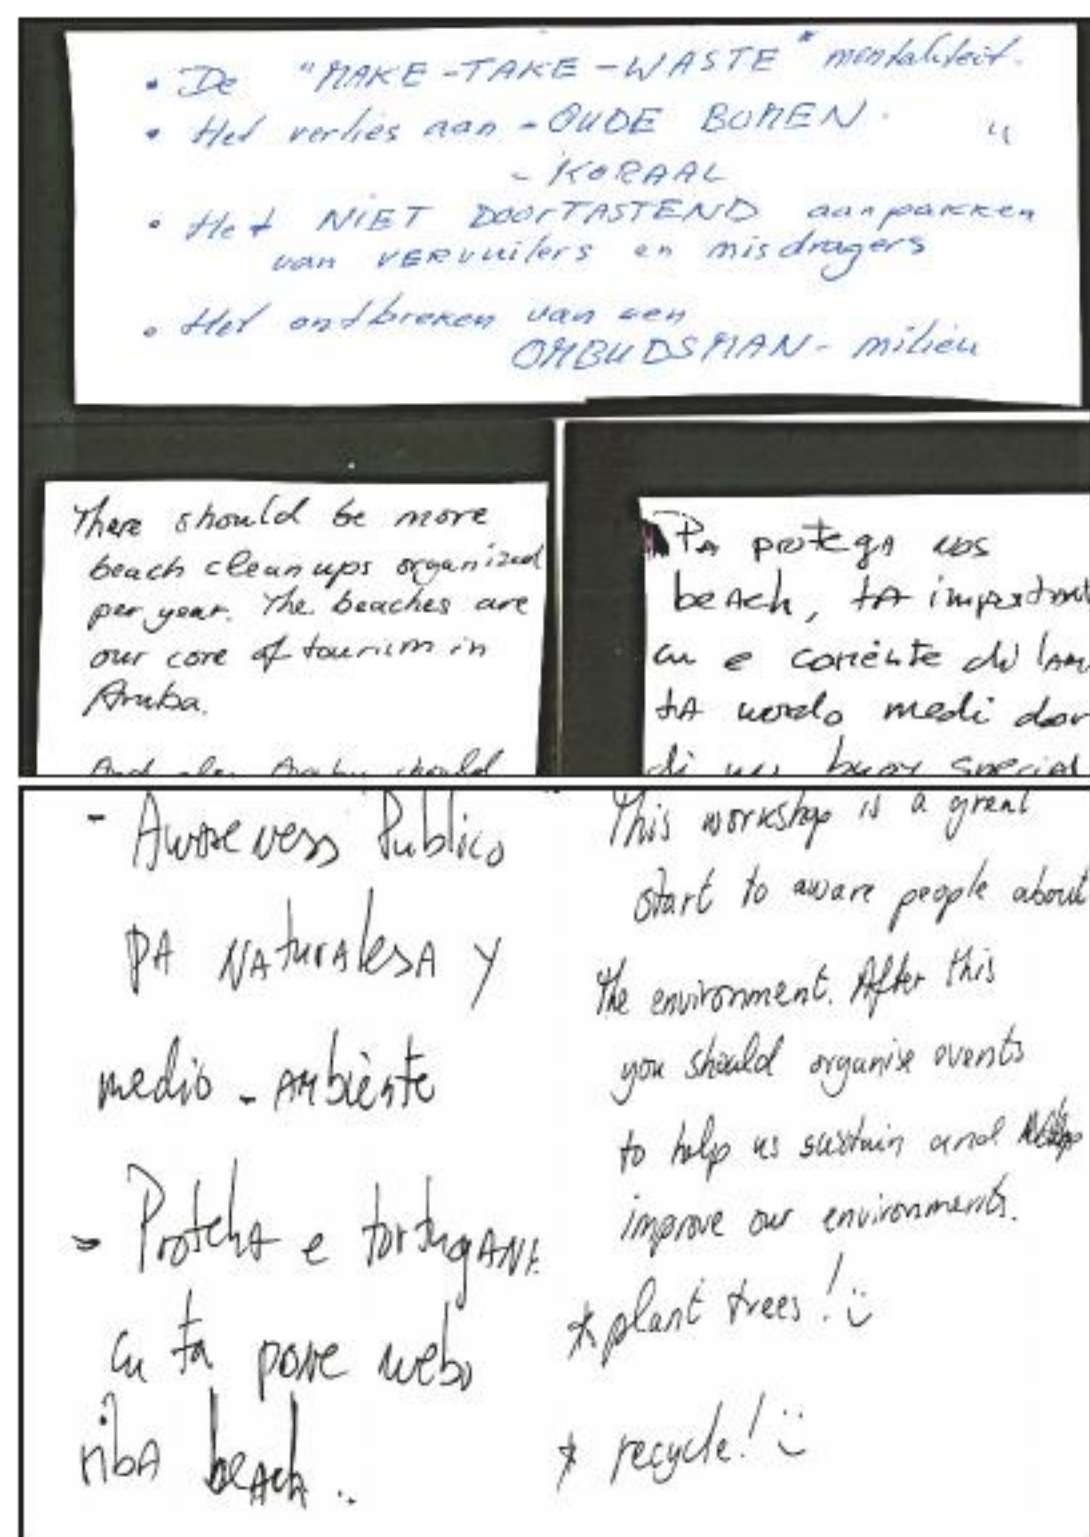 • De "MAKE-TAKE-WASTE" mentaliteit.
• Het verlies aan - OUDE BOMEN. "
- KORAAL
• Het NIET DOORTASTEND aanpakken
van VERVuilers en misdragers
• Het ontbreken van een
OMBUDSMAN- milieu
There should be more
beach clean ups organized
per year. The beaches are
our core of tourism in
Aruba.
And also Aruba should
Pa protega nos
beach, ta important
cu e coriente di lam
ta wordo medi dor
di un buoy special
- Awareness Publico
PA NAturalesA y
medio - Ambiente
- Proteha e tortugAnA
cu ta pone webo
ribA beAch..
This workshop is a great
start to aware people about
the environment. After this
you should organise events
to help us sustain and
improve our environments.
* plant trees! :)
* recycle! :)